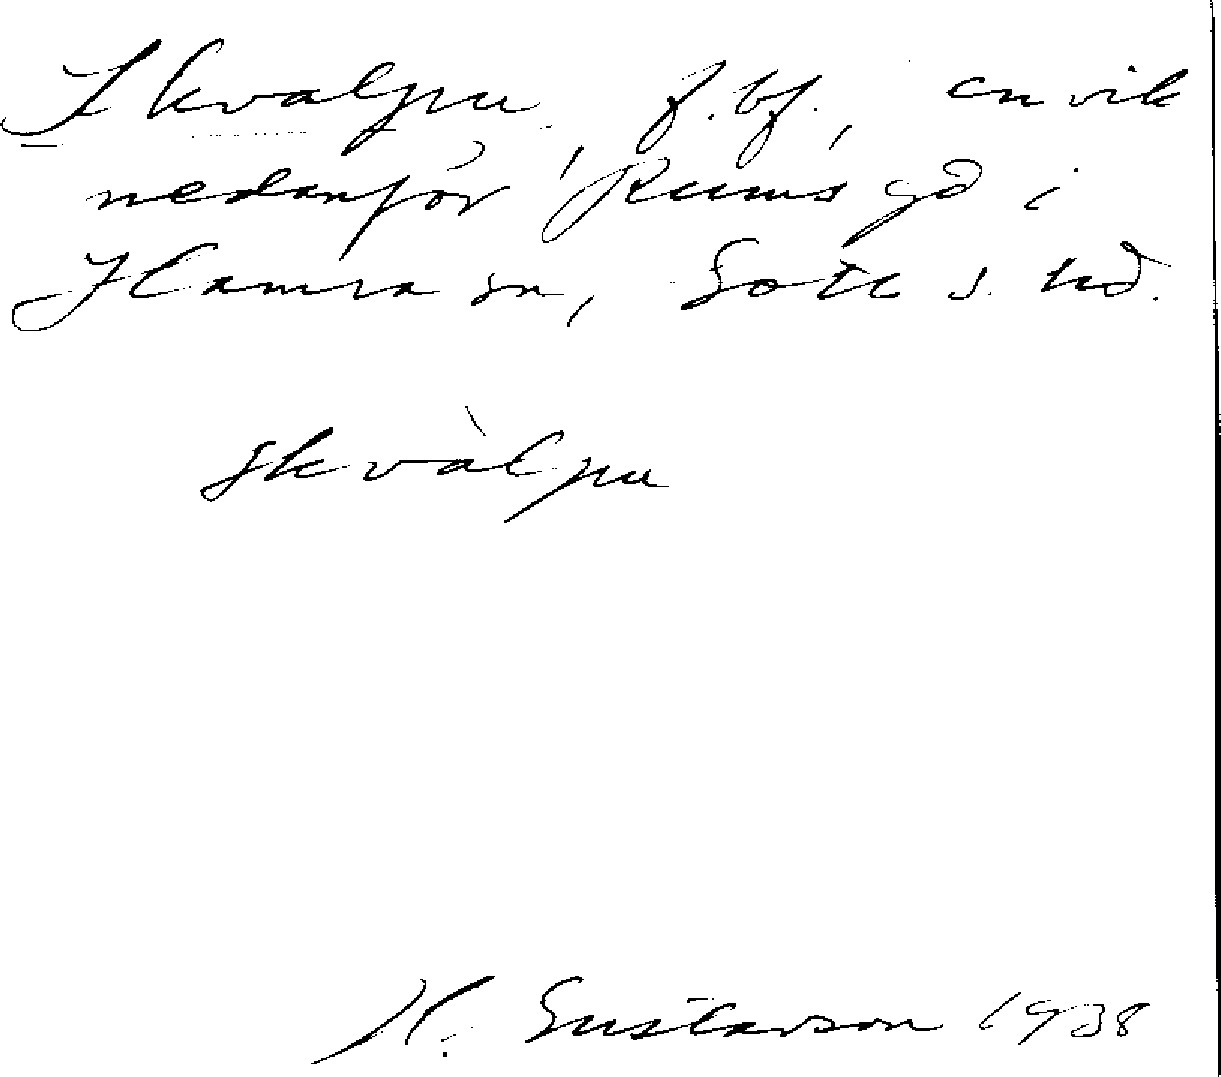 Skvalpu f. bf., en vik
nedanför Rums gd i
Hamra sn, Gotl s. hd.
skvàlpu
H. Gustavson 1938